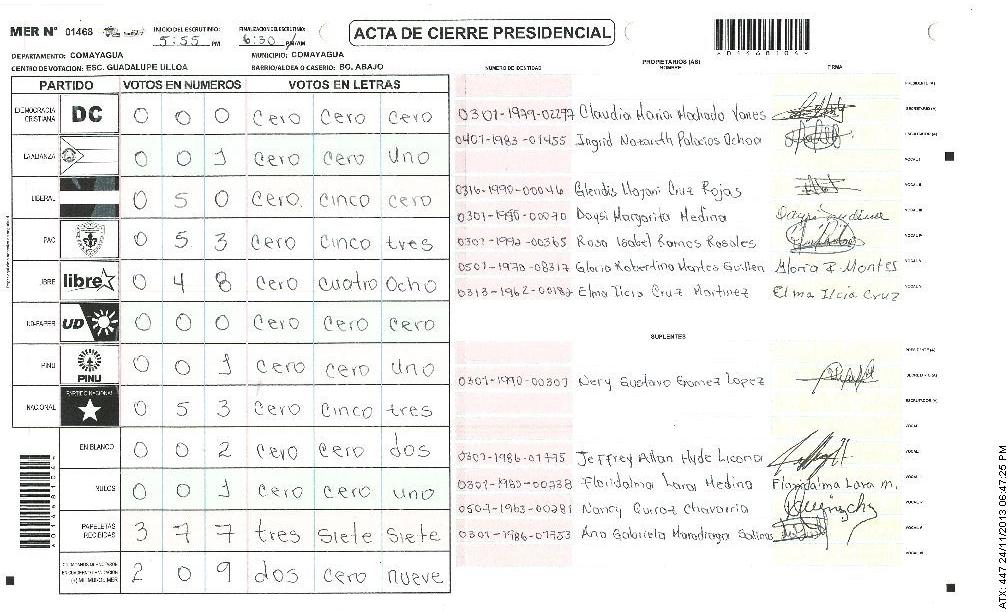 MER N° 01468
INICIO DEL ESCRUTINIO:
5:55 PM
FINALIZACION DEL ESCRUTINIO:
6:30 PM/AM
ACTA DE CIERRE PRESIDENCIAL
DEPARTAMENTO: COMAYAGUA
MUNICIPIO: COMAYAGUA
CENTRO DE VOTACION: ESC. GUADALUPE ULLOA
BARRIO/ALDEA O CASERIO: BO. ABAJO
PARTIDO VOTOS EN NUMEROS VOTOS EN LETRAS
DEMOCRACIA CRISTIANA DC 0 0 0 cero cero cero
LA ALIANZA 0 0 1 cero cero uno
LIBERAL 0 5 0 cero cinco cero
PAC 0 5 3 cero cinco tres
LIBRE libre 0 4 8 cero cuatro ocho
UD-FAPER UD 0 0 0 cero cero cero
PINU PINU 0 0 1 cero cero uno
NACIONAL PARTIDO NACIONAL 0 5 3 cero cinco tres
EN BLANCO 0 0 2 cero cero dos
NULOS 0 0 1 cero cero uno
PAPELETAS RECIBIDAS 3 7 7 tres siete siete
2 0 9 dos cero nueve
NUMERO DE IDENTIDAD
PROPIETARIOS (AS)
NOMBRE
FIRMA
0301-1979-02297 Claudia Maria Machado Yanes
0401-1983-01455 Ingrid Nazareth Palacios Ochoa
0316-1990-00046 Glendis Cruz Rojas
0301-1990-00070 Daysi Margarita Medina
0301-1990-00365 Rosa Isabel Ramos Rosales
0501-1970-08317 Gloria Robertina Montes Guillen Gloria R. Montes
0313-1962-00182 Elma Ilcia Cruz Martinez Elma Ilcia Cruz
SUPLENTES
0301-1990-00301 Nery Gustavo Gomez Lopez
0301-1986-01775 Jeffrey Allan Hyde Licona
0301-1982-00738 Floridalma Lara Medina Floridalma Lara m.
0507-1963-00281 Nancy Quiroz Chavarria
0301-1986-01753 Ana Gabriela Maradiaga Salinas
ATX: 447 24/11/2013 06:47:25 PM